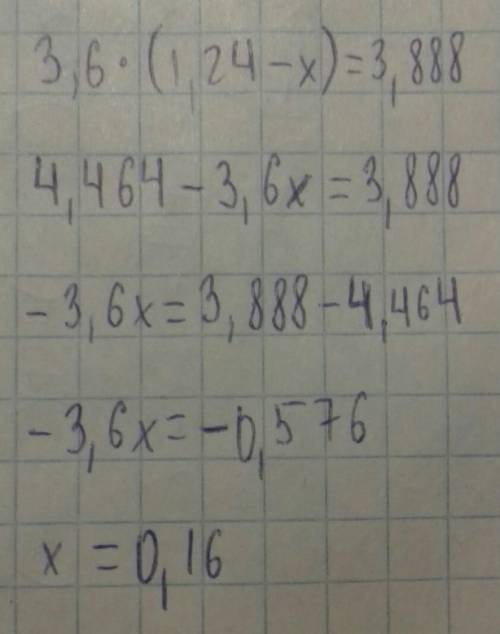 3,6·(1,24-x)=3,888
4,464-3,6x=3,888
-3,6x=3,888-4,464
-3,6x=-0,576
x=0,16